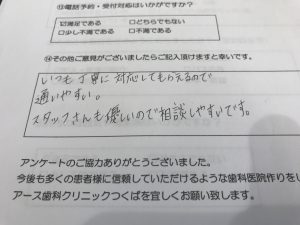 ⑬電話予約・受付対応はいかがですか？
☑満足である　□どちらでもない
□少し不満である　□不満である
⑭その他ご意見がございましたらご記入頂けますと幸いです。
いつも丁寧に対応してもらえるので
通いやすい。
スタッフさんも優しいので相談しやすいです。
アンケートのご協力ありがとうございました。
今後も多くの患者様に信頼していただけるような歯科医院作りをし
アース歯科クリニックつくばを宜しくお願い致します。